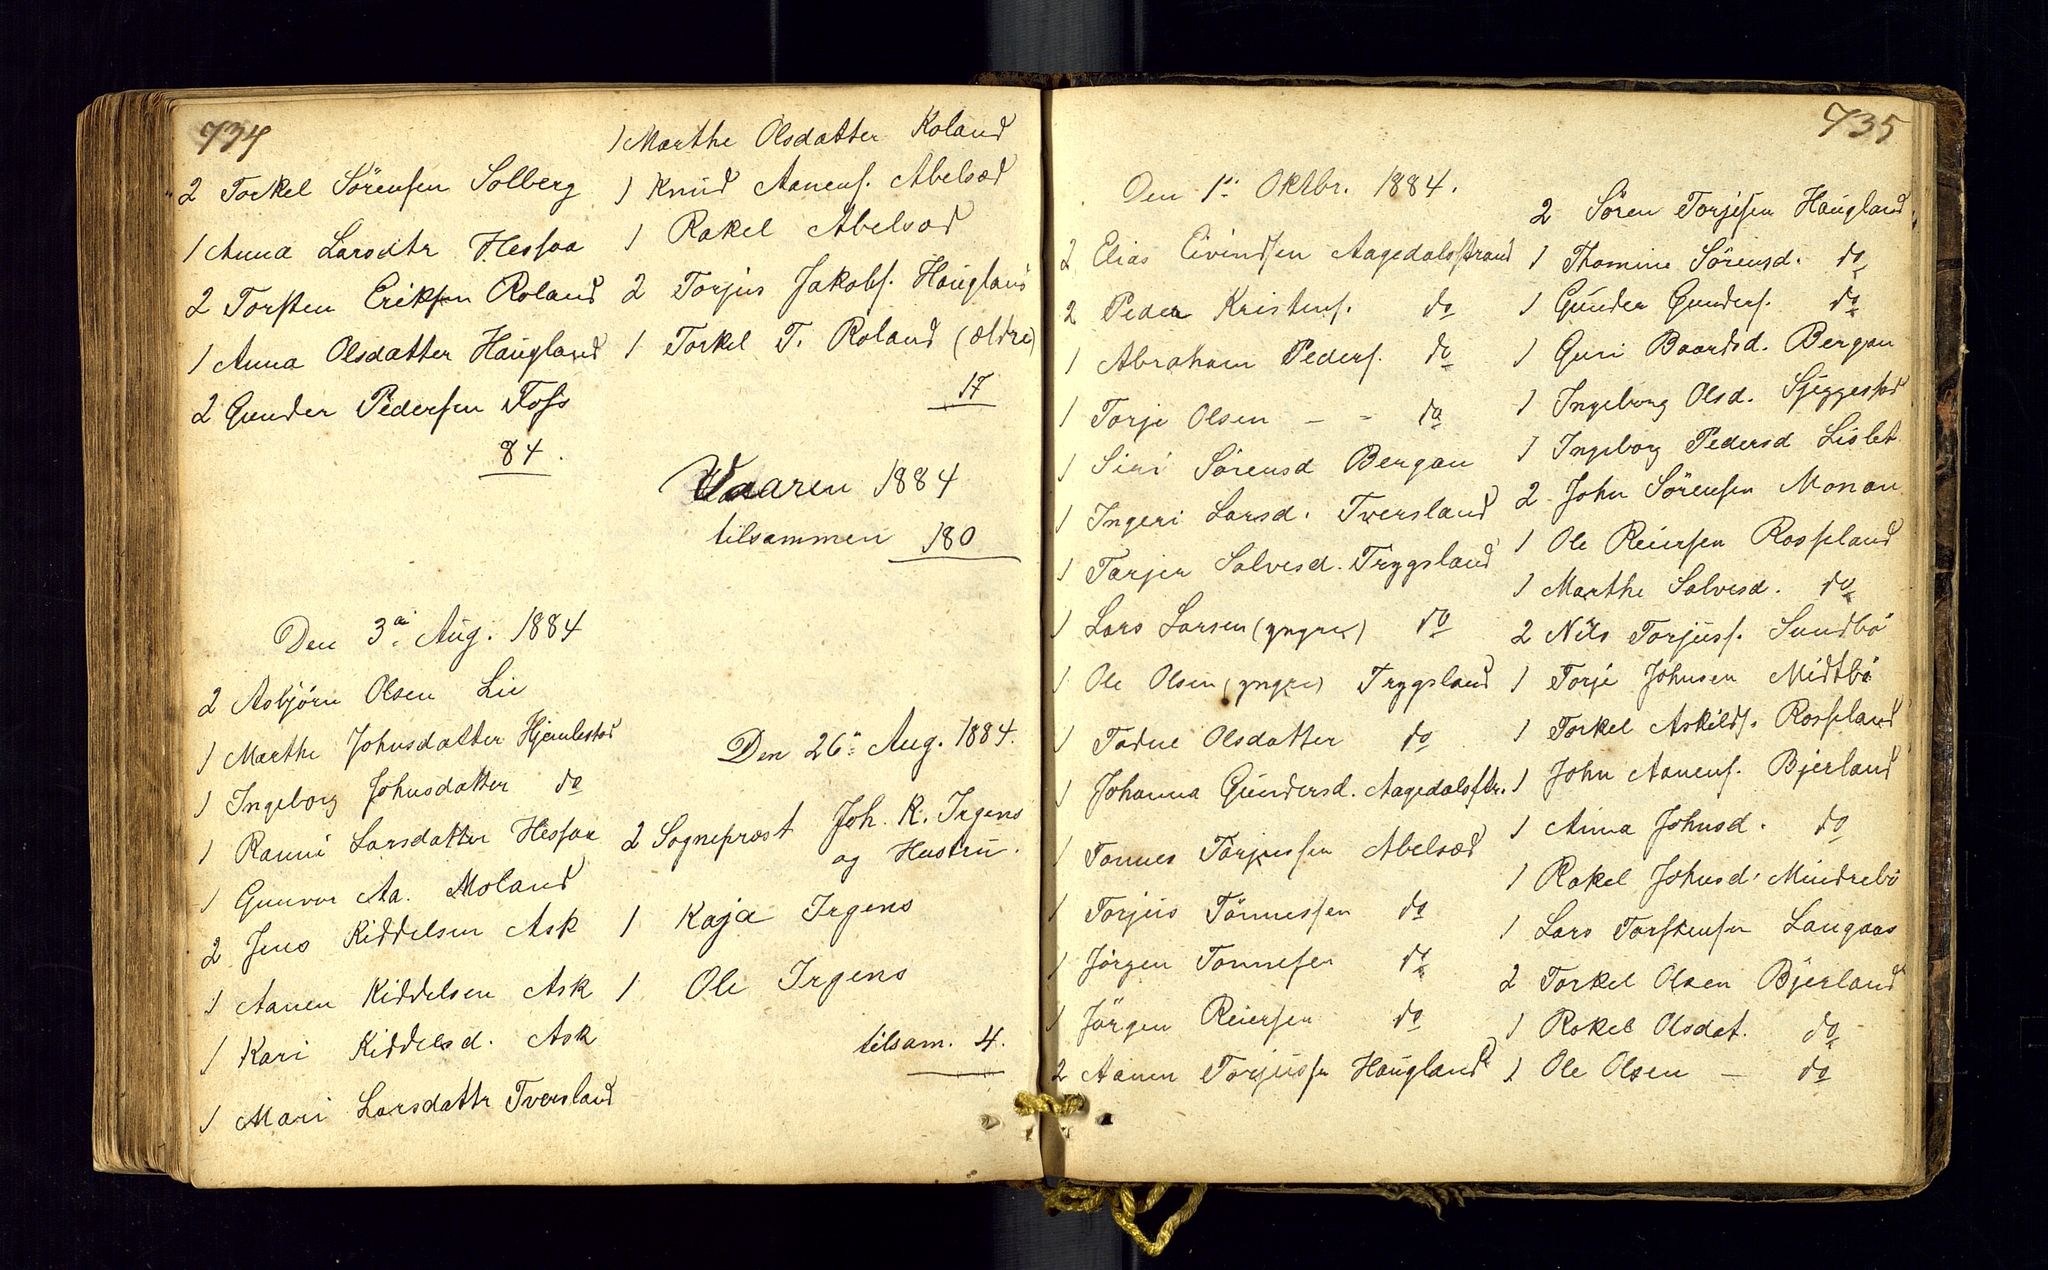 734
2 Torkel Sörensen Solberg
1 Anna Larsdtr Hessaa
2 Torsten Eriksen Roland
1 Anna Olsdatter Haugland
2 Gunder Pedersen Foss
84.
Den 3die Aug. 1884
2 Asbjörn Olsen Lie
1 Marthe Johnsdatter Hjemlestad
1 Ingeborg Johnsdatter do
1 Ranni Larsdatter Hessaa
1 Gunvor Aa. Moland
2 Jens Kiddelsen Ask
1 Aanen Kiddelsen Ask
1 Kari Kiddelsd. Ask
1 Mari Larsdattr Tversland
1 Marthe Olsdatter Roland
1 Knud Aanens. Abelsæd
1 Rakel Abelsæd
2 Torjus Jakobs. Haugland
1 Torkel T. Roland (ældre)
17
Vaaren 1884
tilsammen 180
Den 26de Aug. 1884.
2 Sognepræst Joh. K. Irgens
og Hustru.
1 Kaja Irgens
1 Ole Irgens
tilsam. 4.
735
Den 1ste Oktbr. 1884.
2 Elias Eivindsen Aagedalsstrand
2 Peder Kristens. do
1 Abraham Peders. do
1 Torje Olsen - - do
1 Siri Sörensd Bergan
1 Ingeri Larsd. Tversland
1 Tarjer Salvesd. Trygsland
1 Lars Larsen (yngre) do
1 Ole Olsen (yngre) Trygsland
1 Tadne Olsdatter do
1 Johanna Gundersd. Aagedalsstr.
1 Tönnes Torjussen Abelsæd
1 Torjus Tönnessen do
1 Jörgen Tönnesen do
1 Jörgen Reiersen do
2 Aanen Torjussn Haugland
2 Sören Torjesen Haugland
1 Thomine Sörensd. do
1 Gunder Gunders. do
1 Guri Baardsd. Bergan
1 Ingeborg Olsd. Skjeggestad
1 Ingeborg Pedersd Lislet
2 John Sörensen Monan
1 Ole Reiersen Rosseland
1 Marthe Salvesd. do
2 Nils Torjuss. Sundbö
1 Torje Johnsen Midtbö
1 Torkel Askilds. Rosseland
1 John Aanens. Bjerland
1 Anna Johnsd. do
1 Rakel Johnsd. Mindrebö
1 Lars Torstensen Langaas
2 Torkel Olsen Bjerland
1 Rakel Olsdat. do
1 Ole Olsen - do